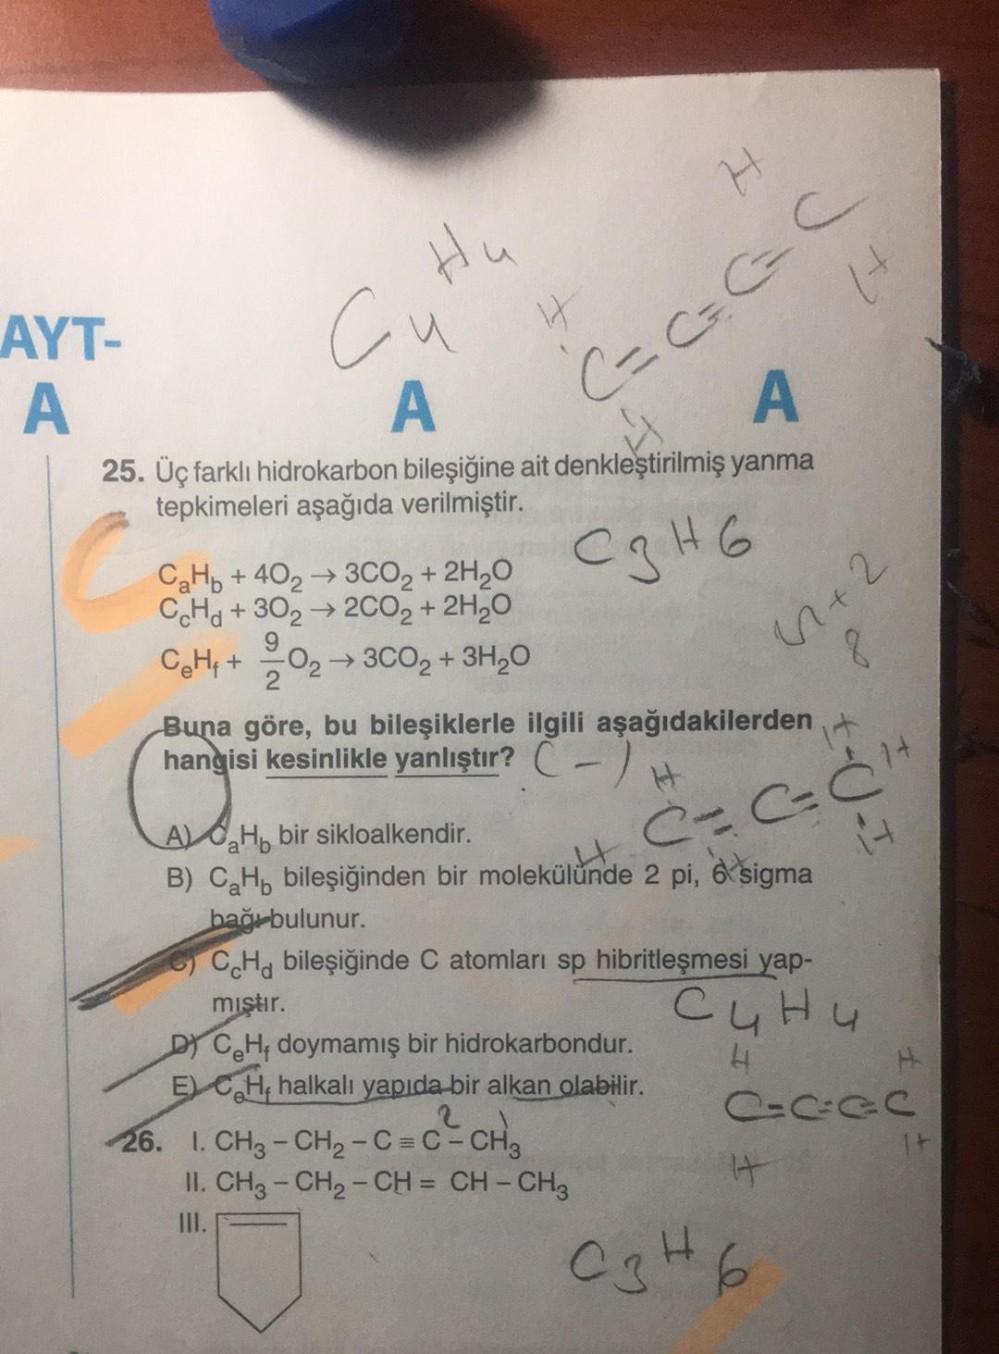 H
H4
C4
H
C=C=C=C
H
H
AYT-
A A A
25. Üç farklı hidrokarbon bileşiğine ait denkleştirilmiş yanma
tepkimeleri aşağıda verilmiştir.
C3H6
CaHb + 4O2 → 3CO2 + 2H2O
CcHd + 3O2 → 2CO2 + 2H2O
CeHf + 9/2 O2 → 3CO2 + 3H2O
8
Buna göre, bu bileşiklerle ilgili aşağıdakilerden
hangisi kesinlikle yanlıştır? (-)
H H
H C=C=C
H H H
A) CaHb bir sikloalkendir.
B) CaHb bileşiğinden bir molekülünde 2 pi, 6 sigma
bağı bulunur.
C) CcHd bileşiğinde C atomları sp hibritleşmesi yap-
mıştır.
C4H4
D) CeHf doymamış bir hidrokarbondur.
E) CeHf halkalı yapıda bir alkan olabilir.
H H
C=C=C=C
H H
2 1
26. I. CH3 – CH2 – C ≡ C – CH3
II. CH3 – CH2 – CH = CH – CH3
III.
C3H6